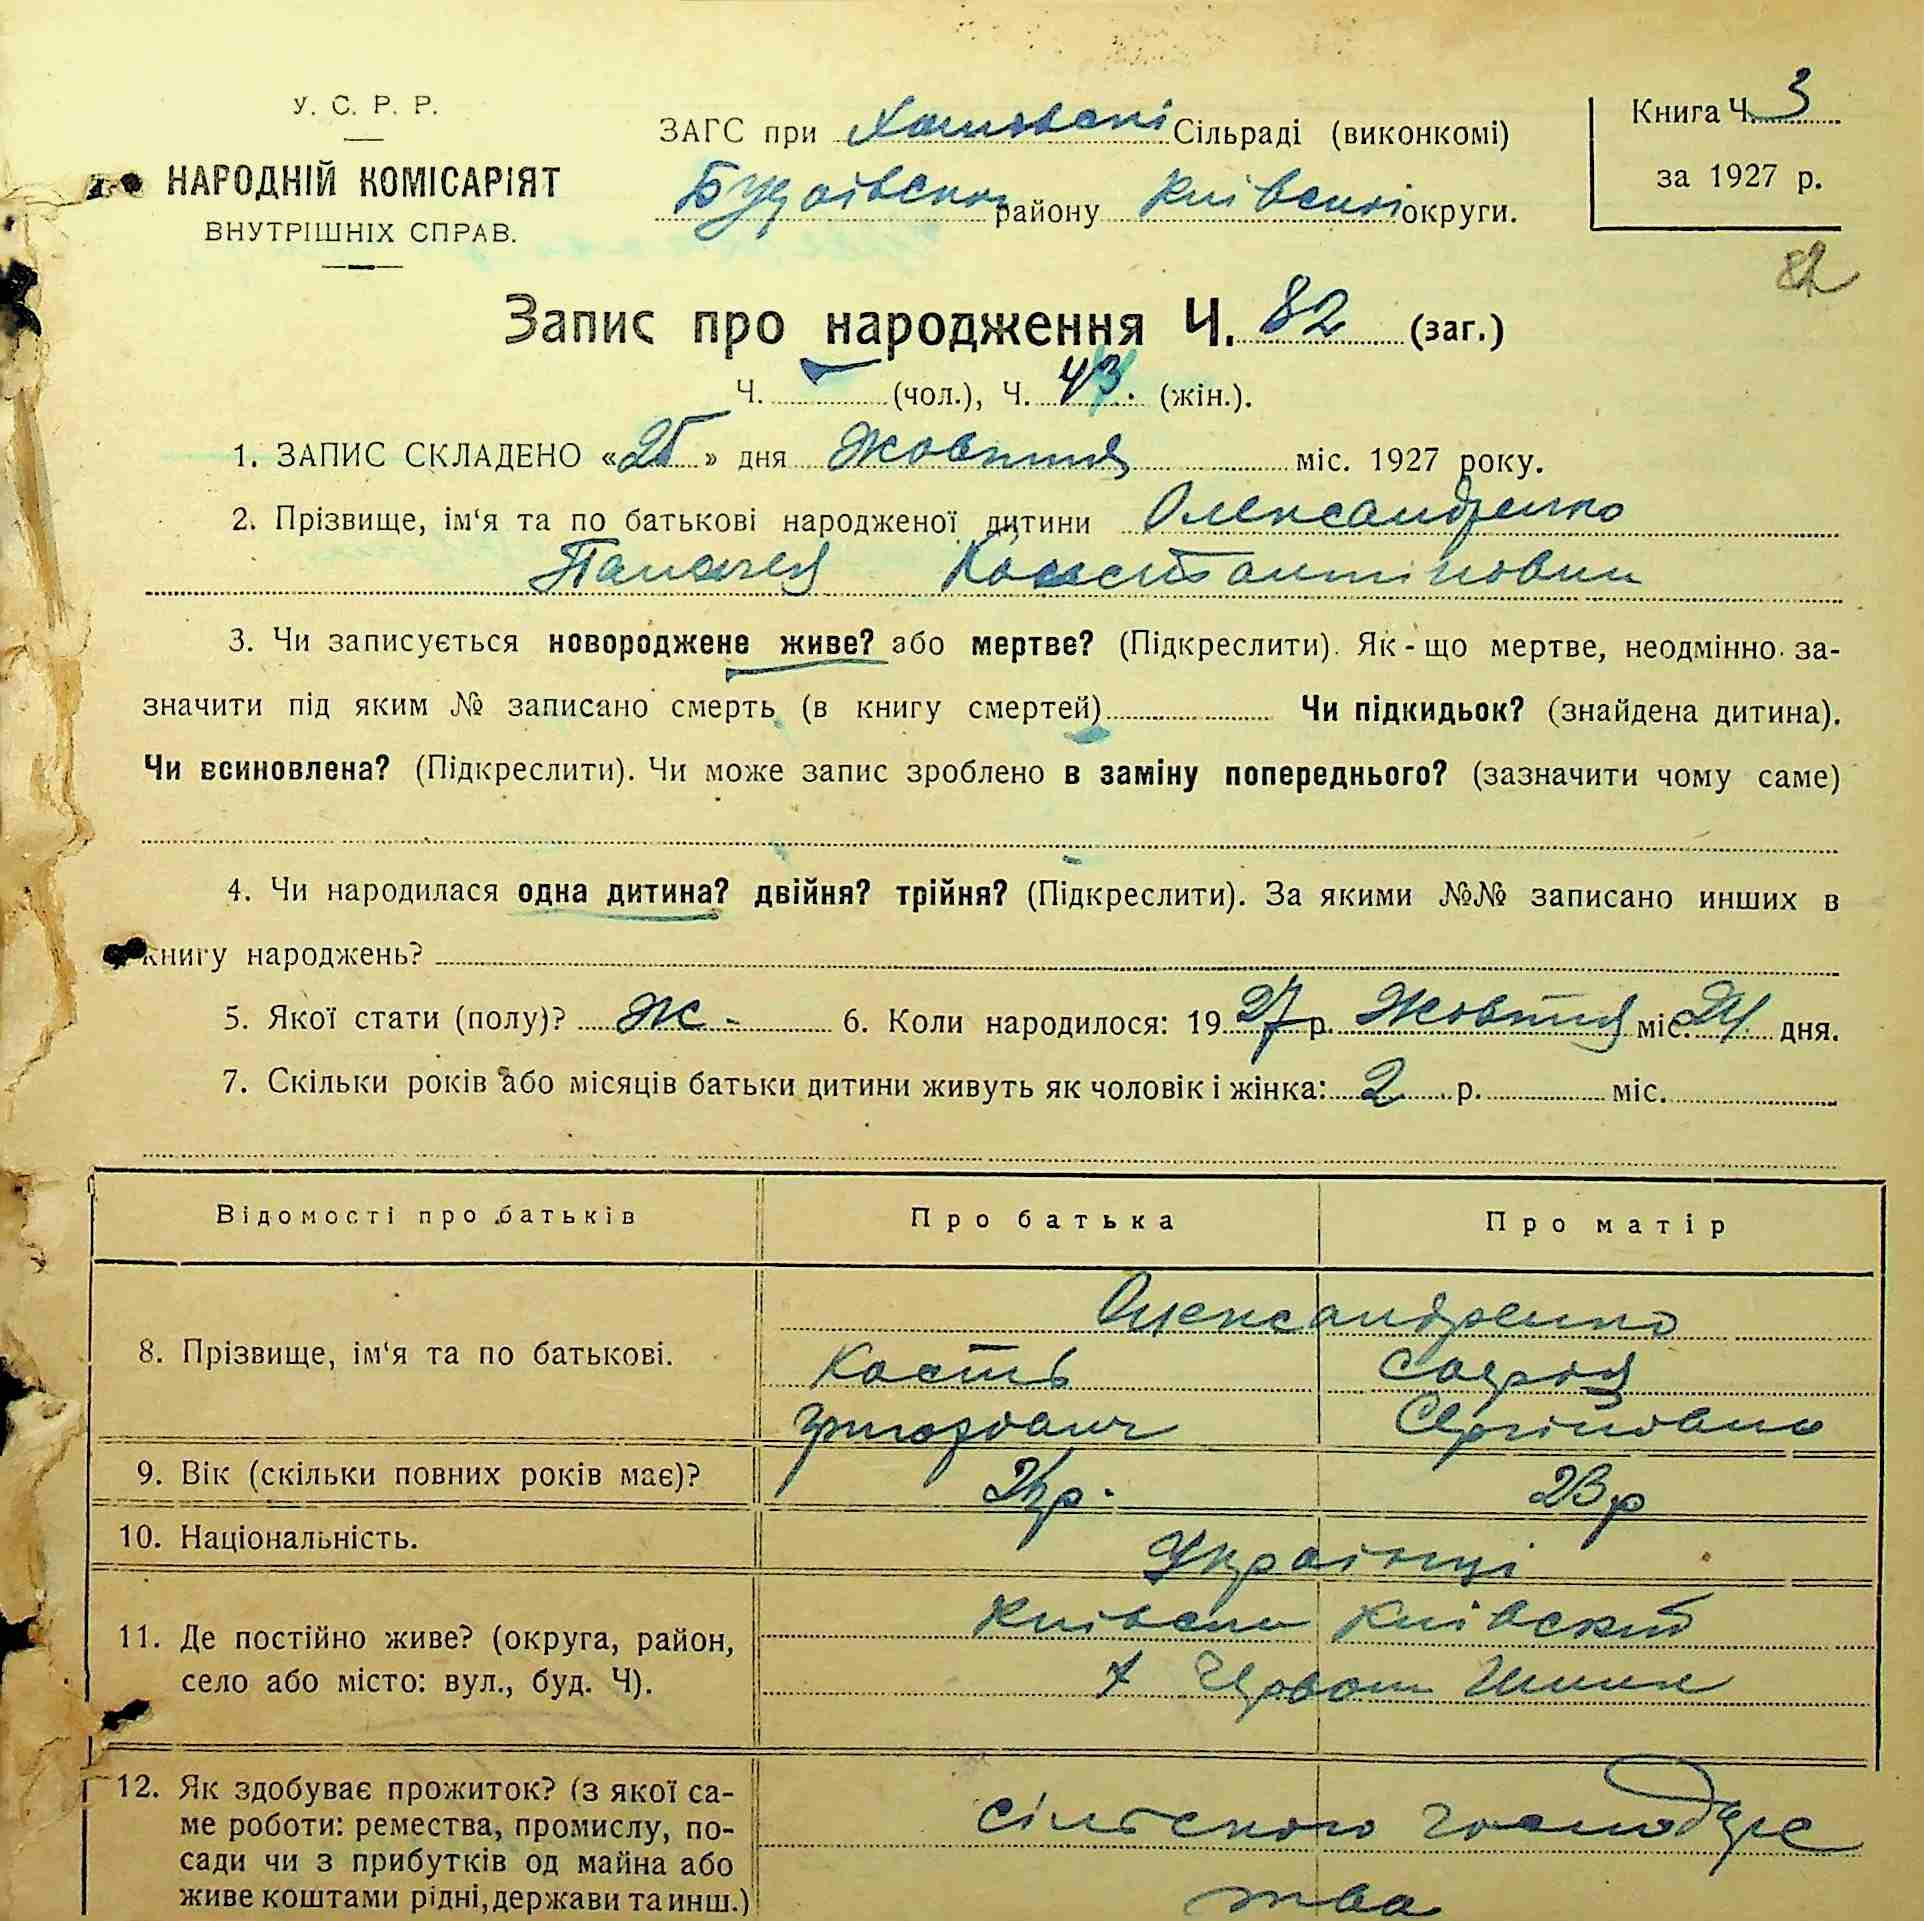 У. С. Р. Р.
НАРОДНІЙ КОМІСАРІЯТ
ВНУТРІШНІХ СПРАВ.
ЗАГС при Хотовскі Сільраді (виконкомі)
Будаівском району Київськоі округи.
Книга Ч. 3
за 1927 р.
82
Запис про народження Ч. 82 (заг.)
Ч. (чол.), Ч. 43. (жін.).
1. ЗАПИС СКЛАДЕНО «25» дня Жовтня міс. 1927 року.
2. Прізвище, ім‘я та по батькові народженої дитини Олександренко
Костянтіновни
3. Чи записується новороджене живе? або мертве? (Підкреслити). Як-що мертве, неодмінно за-
значити під яким № записано смерть (в книгу смертей) Чи підкидьок? (знайдена дитина).
Чи всиновлена? (Підкреслити). Чи може запис зроблено в заміну попереднього? (зазначити чому саме)
4. Чи народилася одна дитина? двійня? трійня? (Підкреслити). За якими №№ записано инших в
книгу народжень?
5. Якої стати (полу)? Ж. 6. Коли народилося: 1927 р. Жовтня міс. 24 дня.
7. Скільки років або місяців батьки дитини живуть як чоловік і жінка: 2 р. міс.
Відомості про батьків Про батька Про матір
8. Прізвище, ім‘я та по батькові.
Олександренко
Кость Софія
Григорович Сергійовна
9. Вік (скільки повних років має)? 23 р
10. Національність. Українці
11. Де постійно живе? (округа, район,
село або місто: вул., буд. Ч).
Київськ Київский
х
12. Як здобуває прожиток? (з якої са-
ме роботи: ремества, промислу, по-
сади чи з прибутків од майна або
живе коштами рідні, держави та инш.)
сільского господарс
тва